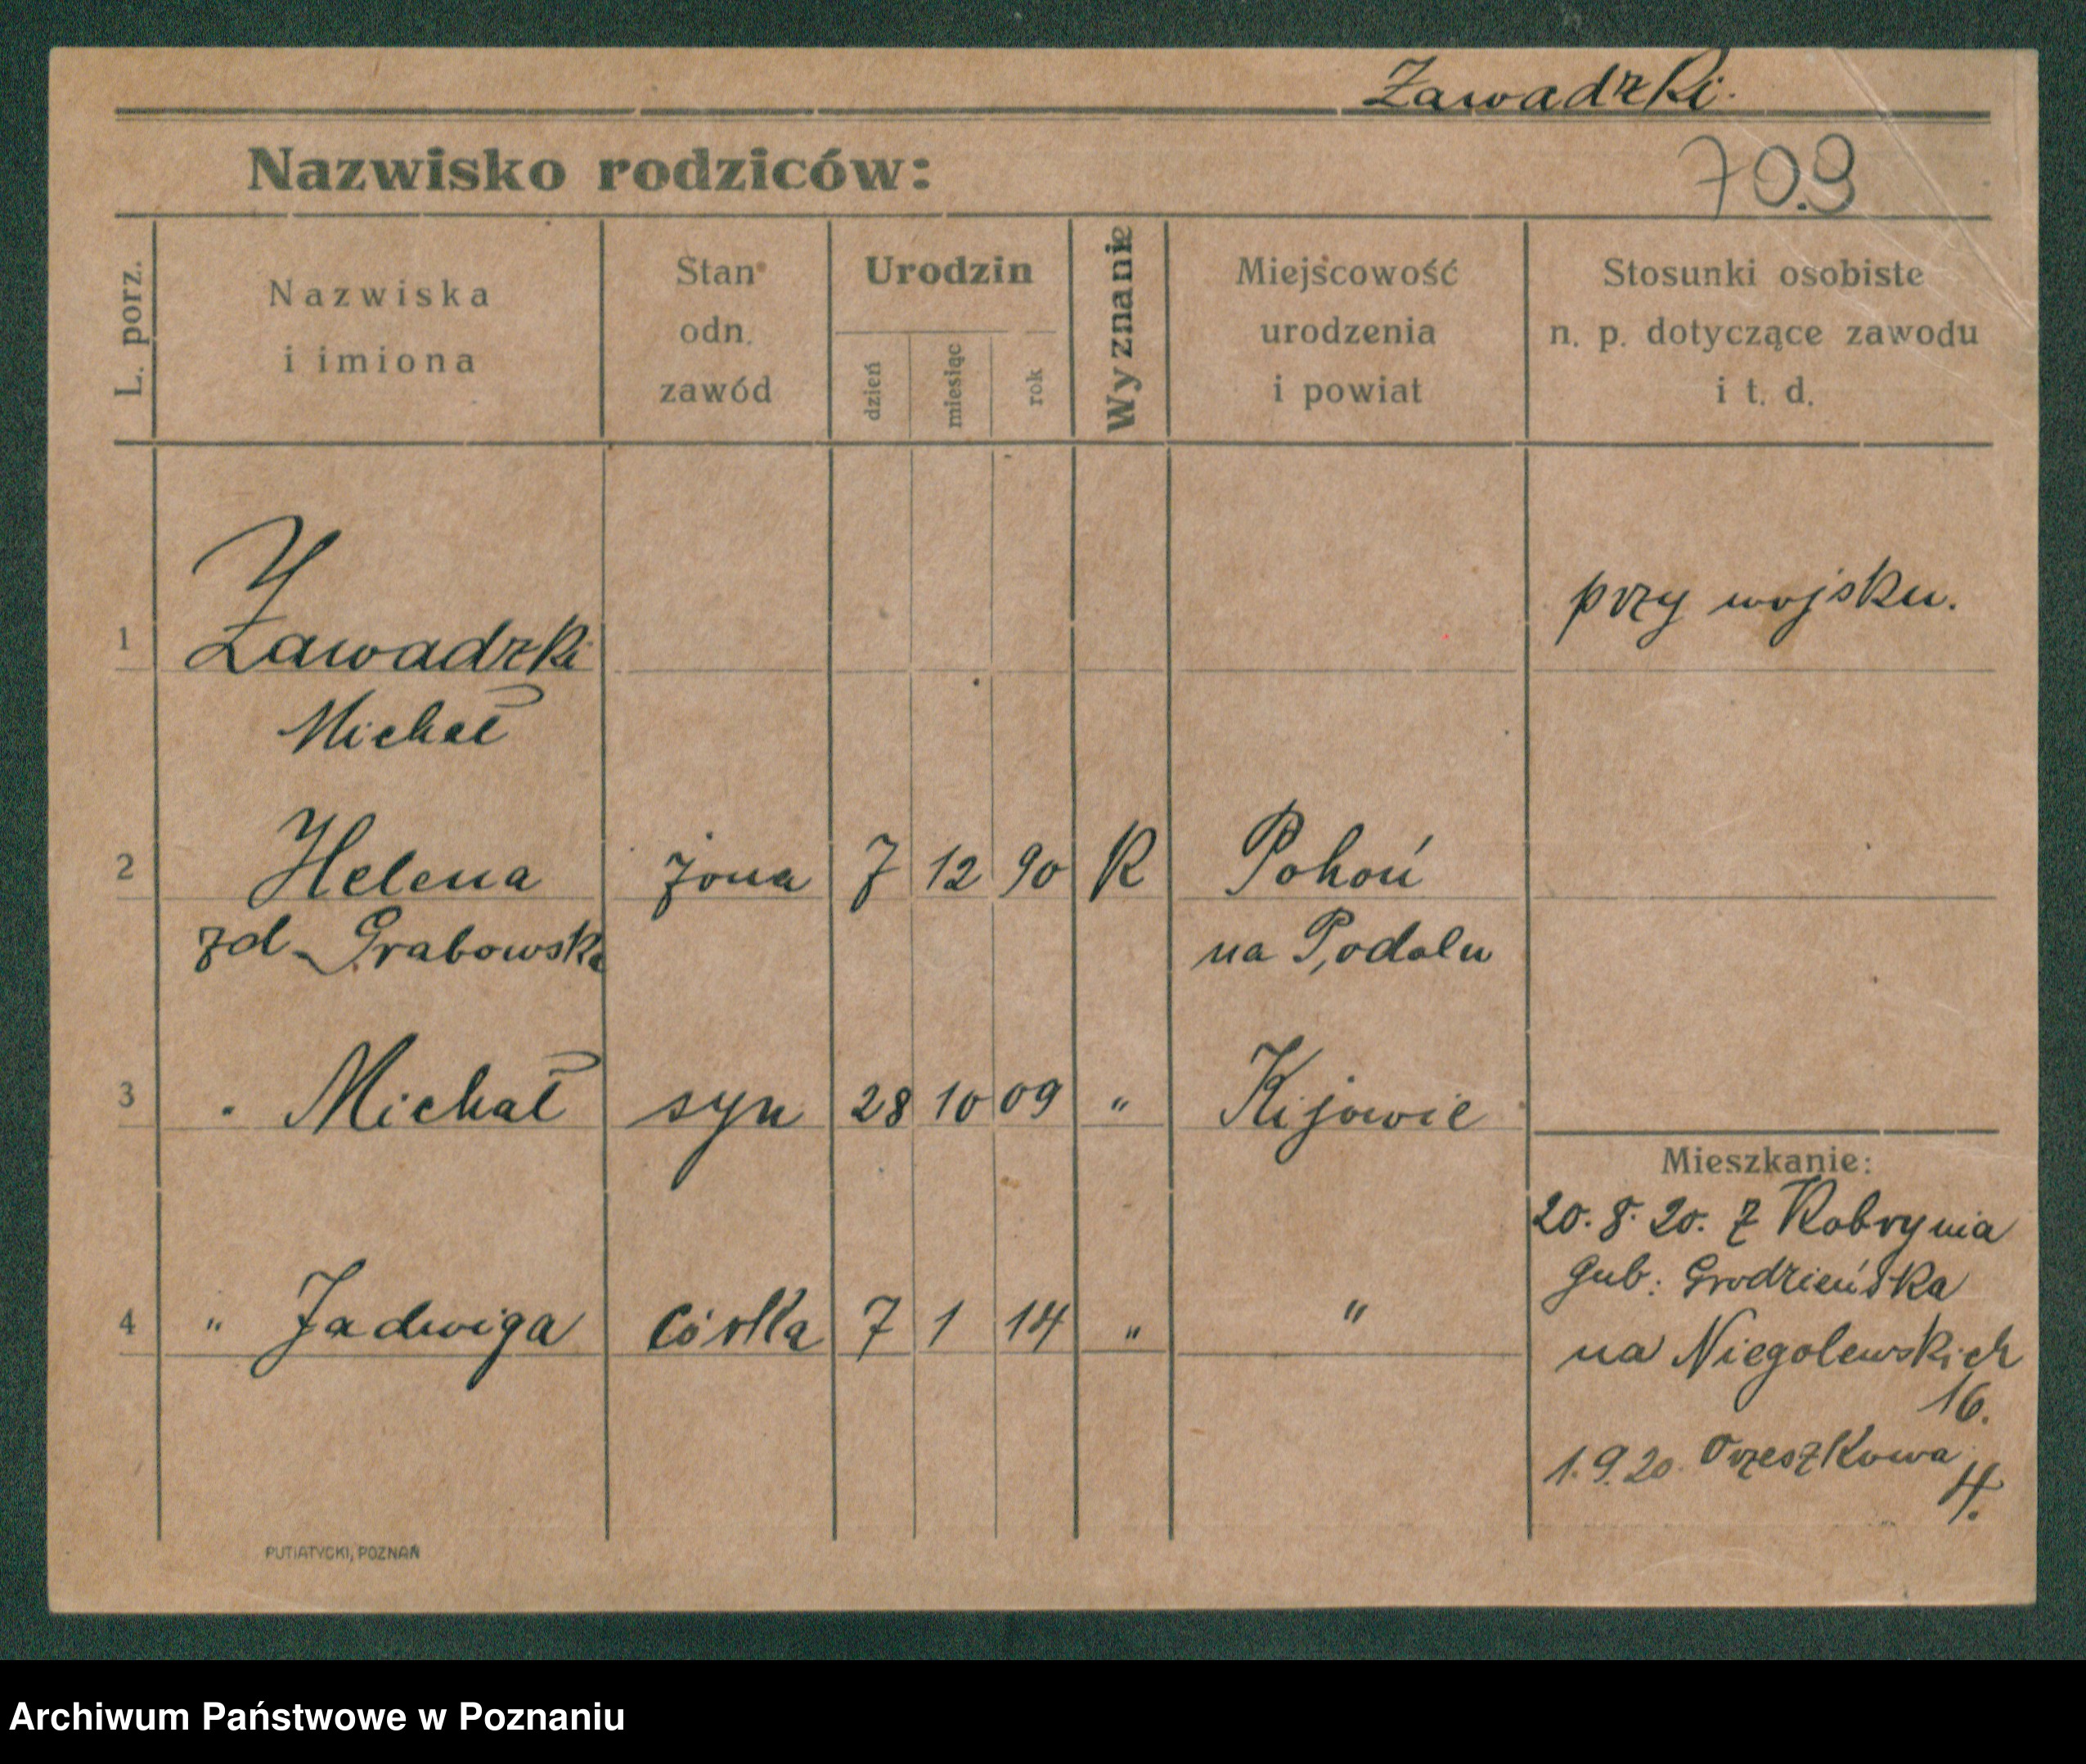 Zawadzki.
Nazwisko rodziców:
709
L. porz.
Nazwiska
i imiona
Stan
odn.
zawód
Urodzin
dzień
miesiąc
rok
Wyznanie
Miejscowość
urodzenia
i powiat
Stosunki osobiste
n. p. dotyczące zawodu
i t. d.
1 Zawadzki przy wojsku.
Michał
2 Helena żona 7 12 90 K Pohoń
zd. Grabowska na Podolu
3 " Michał syn 28 10 09 " Kijowie
Mieszkanie:
20. 8. 20. z Kobrynia
gub: Grodzieńska
4 " Jadwiga córka 7 1 14 " "
na Niegolewskich
16.
1.9.20. Orzeszkowa
4.
PUTIATYCKI, POZNAŃ
Archiwum Państwowe w Poznaniu